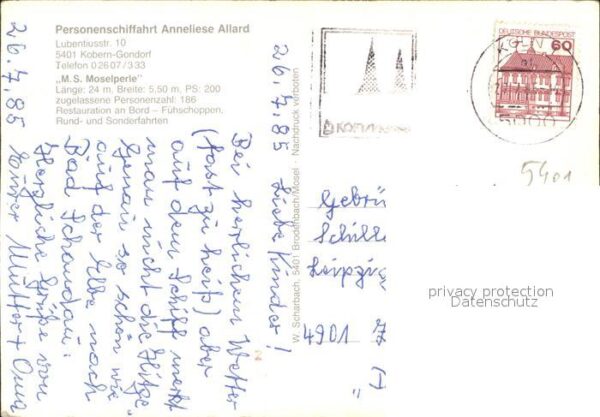 Personenschiffahrt Anneliese Allard
Lubentiusstr. 10
5401 Kobern-Gondorf
Telefon 0 26 07 / 3 33
„M.S. Moselperle"
Länge: 24 m, Breite: 5,50 m, PS: 200
zugelassene Personenzahl: 186
Restauration an Bord – Fühschoppen,
Rund- und Sonderfahrten
26.7.85
26.7.85 Liebe Kinder!
Bei herrlichem Wetter
(fast zu heiß) aber
auf dem Schiff merkt
man nicht die Hitze.
Genau so schön wie
auf der Elbe nach
Bad Schandau.
Herzliche Grüße von
Eurer Mutter + Oma
W. Scharbach, 5401 Brodenbach/Mosel · Nachdruck verboten
DEUTSCHE BUNDESPOST
60
KÖLN
5401
Gebrü
Schille
Leipzig
4901 Z
privacy protection
Datenschutz